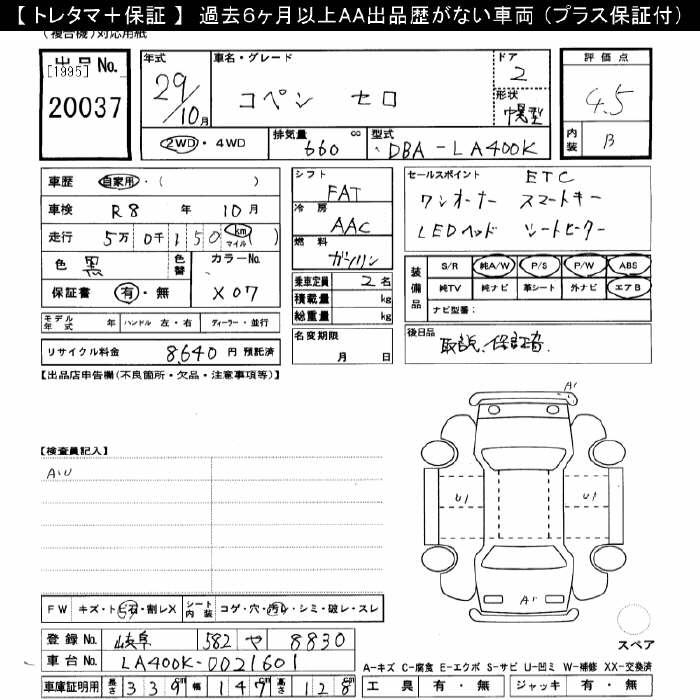 【 トレタマ＋保証 】 過去6ヶ月以上AA出品歴がない車両 （プラス保証付）
（複合機）対応用紙
出品 No.
[1995]
20037
年式
29/10月
車名・グレード
コペン セロ
ドア
2
形状
幌型
2WD・4WD
排気量 660 cc
型式 DBA-LA400K
評価点
4.5
内装 B
車歴 自家用・（ ）
車検 R8 年 10月
走行 5万 0千 150 (km マイル)
色 黒
色替
カラーNo.
X07
保証書 有・無
モデル年式 年
ハンドル 左・右
ディーラー・並行
リサイクル料金 8,640 円 預託済
シフト
FAT
冷房
AAC
燃料
ガソリン
乗車定員 2名
積載量 kg
総重量 kg
名変期限
月 日
セールスポイント ETC
ワンオーナー スマートキー
LEDヘッド シートヒーター
装備品
S/R 純A/W P/S P/W ABS
純TV 純ナビ 革シート 外ナビ エアB
ナビ型番：
後日品
取説、保証書
【出品店申告欄(不良箇所・欠品・注意事項等)】
【検査員記入】
AU
A1
U1
U1
A1
スペア
FW キズ・トビ石・割レX
シート内装 コゲ・穴・汚レ・シミ・破レ・スレ
登録 No. 岐阜 582 や 8830
車台 No. LA400K-0021601
車庫証明用 長さ 339cm 幅 147cm 高さ 128cm
A-キズ C-腐食 E-エクボ S-サビ U-凹ミ W-補修 XX-交換済
工具 有・無 ジャッキ 有・無